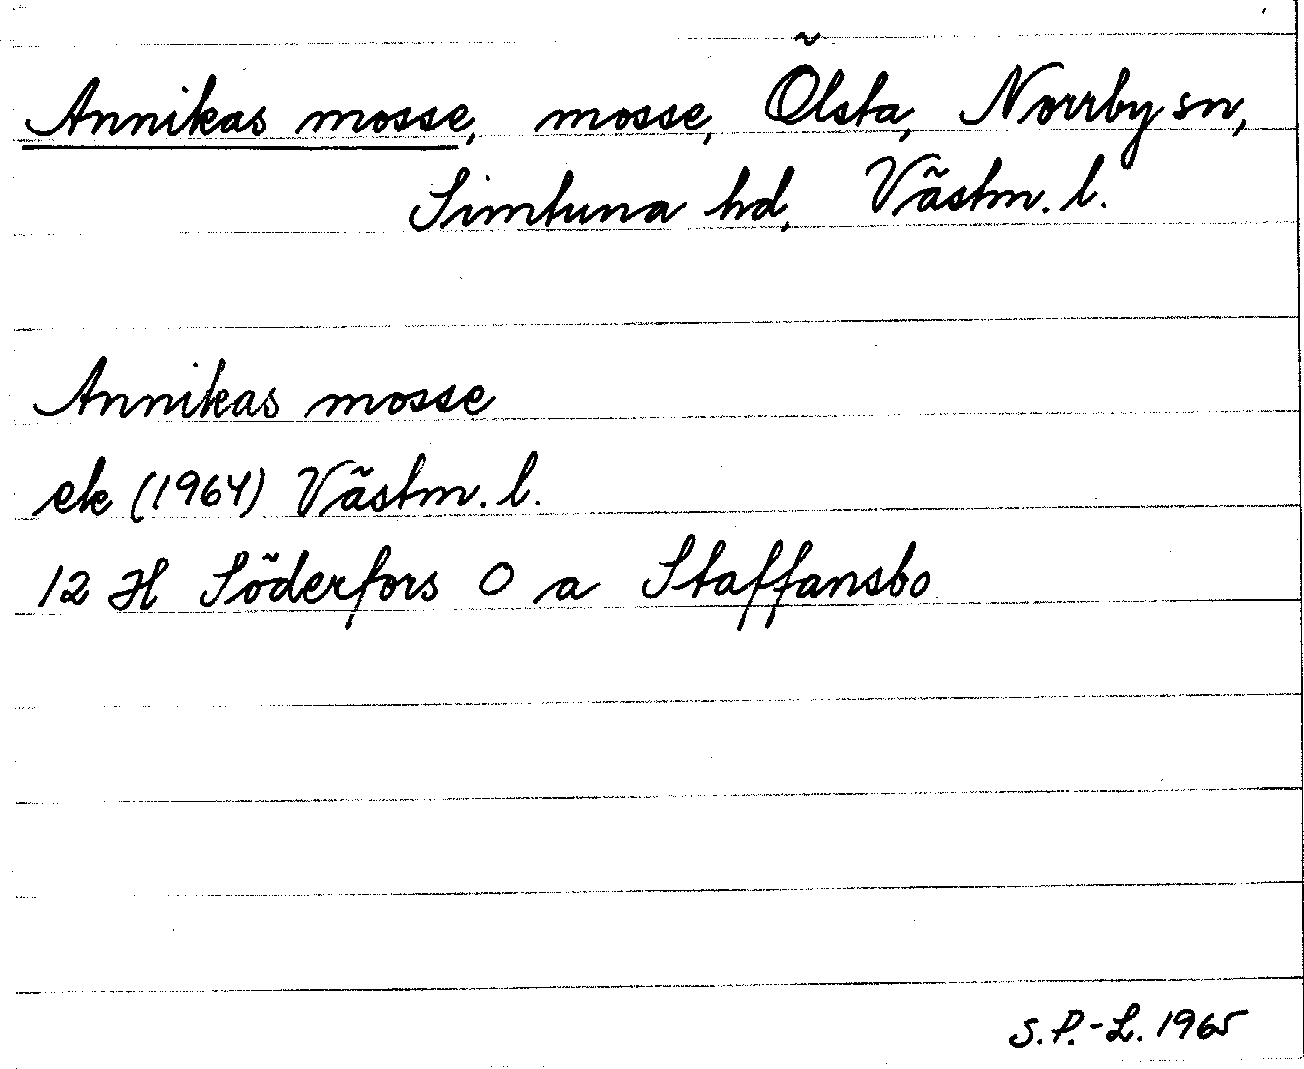 Annikas mosse, mosse, Ölsta, Norrby sn,
Simtuna hd, Västm. l.
Annikas mosse
ek (1964) Västm. l.
12 H Söderfors 0 a Staffansbo
S.P.-L. 1965